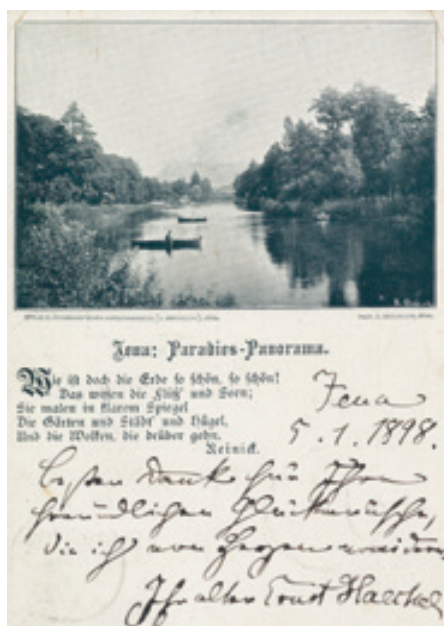 Jena: Paradies-Panorama.
Wie ist doch die Erde so schön, so schön!
Das wissen die Flüss' und Seen;
Sie malen in klarem Spiegel
Die Gärten und Städt' und Hügel,
Und die Wolken, die drüber gehn.
Reinick.
Jena
5.1.1898.
besten Dank für Ihre
freundlichen Glückwünsche,
die ich von Herzen erwidere
Ihr alter Ernst Haeckel